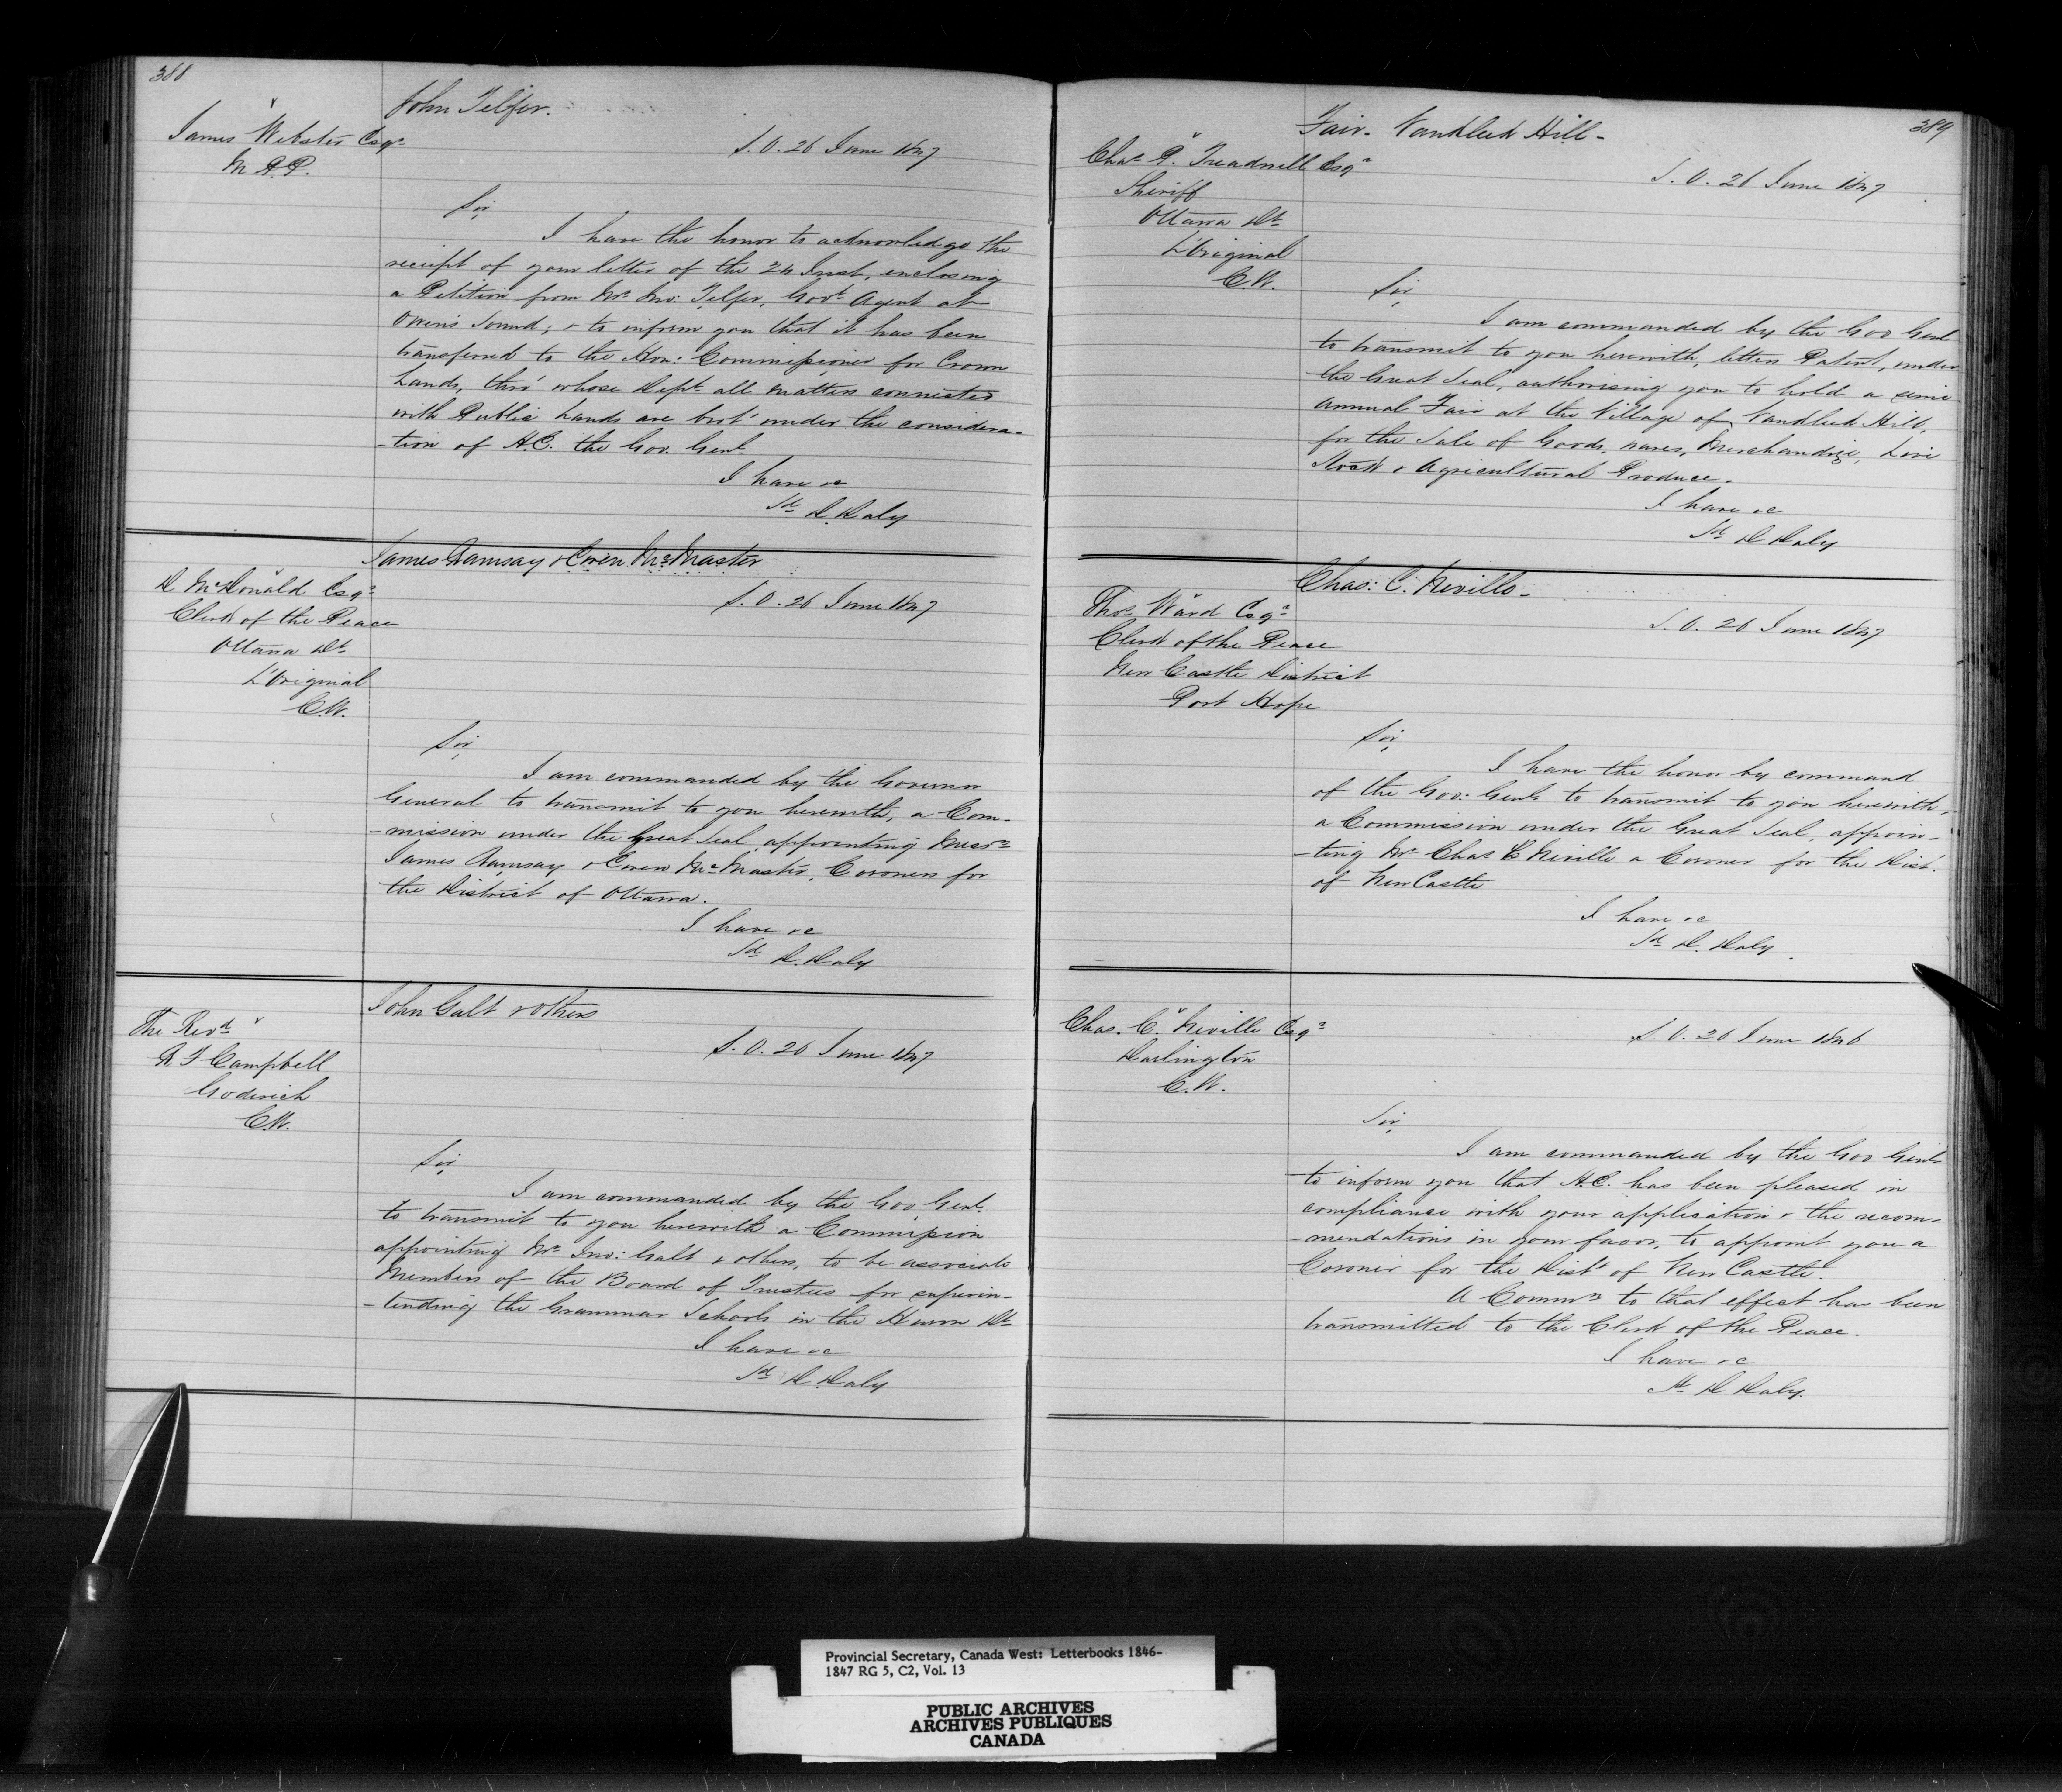 388
John Telfer.
James Webster Esqr
M.P.P.
S.O. 26 June 1847
Sir,
I have the honor to acknowledge the
receipt of your letter of the 24 Inst, enclosing
a Petition from Mr Jno: Telfer, Govt Agent at
Owen's Sound; & to inform you that it has been
transferred to the Hon: Commissioner for Crown
Lands, thro' whose Dept all matters connected
with Public Lands are brot' under the considera-
-tion of H.E. the Gov. Genl
I have &c
Sd D. Daly
James Ramsay & Owen McMaster
D McDonald Esqr
Clerk of the Peace
Ottawa Dt
L'Original
C.W.
S.O. 26 June 1847
Sir,
I am commanded by the Governor
General to transmit to you herewith, a Com-
-mission under the Great Seal, appointing Messrs
James Ramsay & Owen McMaster, Coroners for
the District of Ottawa.
I have &c
Sd D. Daly
John Galt & others
The Revd
Campbell
Goderich
C.W.
S.O. 26 June 1847
Sir,
I am commanded by the Gov Genl
to transmit to you herewith a Commission
appointing Mr Jno: Galt & others, to be associate
Members of the Board of Trustees for superin-
-tending the Grammar Schools in the Huron Dt
I have &c
Sd D. Daly
389
Fair- Vankleek Hill-
Chas P. Treadwell Esqr
Sheriff
Ottawa Dt
L'Original
C.W.
S.O. 26 June 1847
Sir,
I am commanded by the Gov Genl
to transmit to you herewith, letters Patent, under
the Great Seal, authorising you to hold a semi
annual Fair at the Village of Vankleek Hill,
for the Sale of Goods, wares, Merchandize, Live
Stock & Agricultural Produce.
I have &c
Sd D Daly
Chas: C. Neville-
Thos Ward Esqr
Clerk of the Peace
New Castle District
Port Hope
S.O. 26 June 1847
Sir,
I have the honor by command
of the Gov: Genl. to transmit to you herewith,
a Commission under the Great Seal, appoin-
-ting Mr Chas C Neville a Coroner for the Dist.
of New Castle
I have &c
Sd D. Daly.
Chas. C. Neville Esqr
Darlington
C.W.
S.O. 26 June 1846
Sir,
I am commanded by the Gov Genl
to inform you that H.E. has been pleased in
compliance with your application & the recom-
-mendations in your favor, to appoint you a
Coroner for the Dist of New Castle.
A Commn to that effect has been
transmitted to the Clerk of the Peace.
I have &c
Sd D Daly.
Provincial Secretary, Canada West: Letterbooks 1846-
1847 RG 5, C2, Vol. 13
PUBLIC ARCHIVES
ARCHIVES PUBLIQUES
CANADA